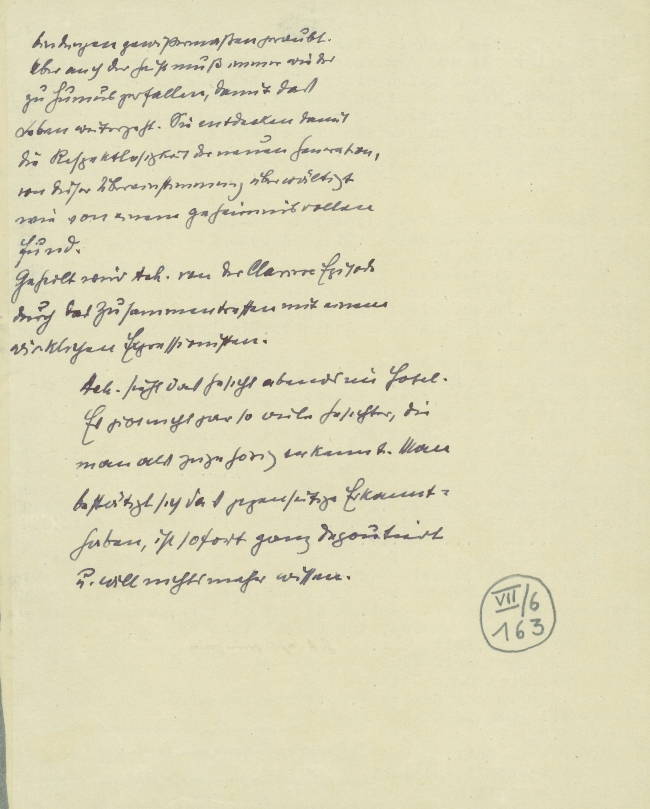 bindungen gewissermaßen geraubt.
Aber auch der Geist muß immer wieder
zu Humus zerfallen, damit das
Leben weitergeht. Sie entdecken damit
die Respektlosigkeit der neuen Generation,
von dieser Übereinstimmung überwältigt
wie von einem geheimnisvollen
Fund.
Geheilt wird Ach. von der Clarisse Episode
durch das Zusammentreffen mit einem
wirklichen Expressionisten.
Ach. sieht das Gesicht abends im Hotel.
Es giebt nicht gar so viele Gesichter, die
man als zugehörig erkennt. Man
bestätigt sich das gegenseitige Erkannt-
haben, ist sofort ganz degoutiert
u. will nichts mehr wissen.
VII/6
163